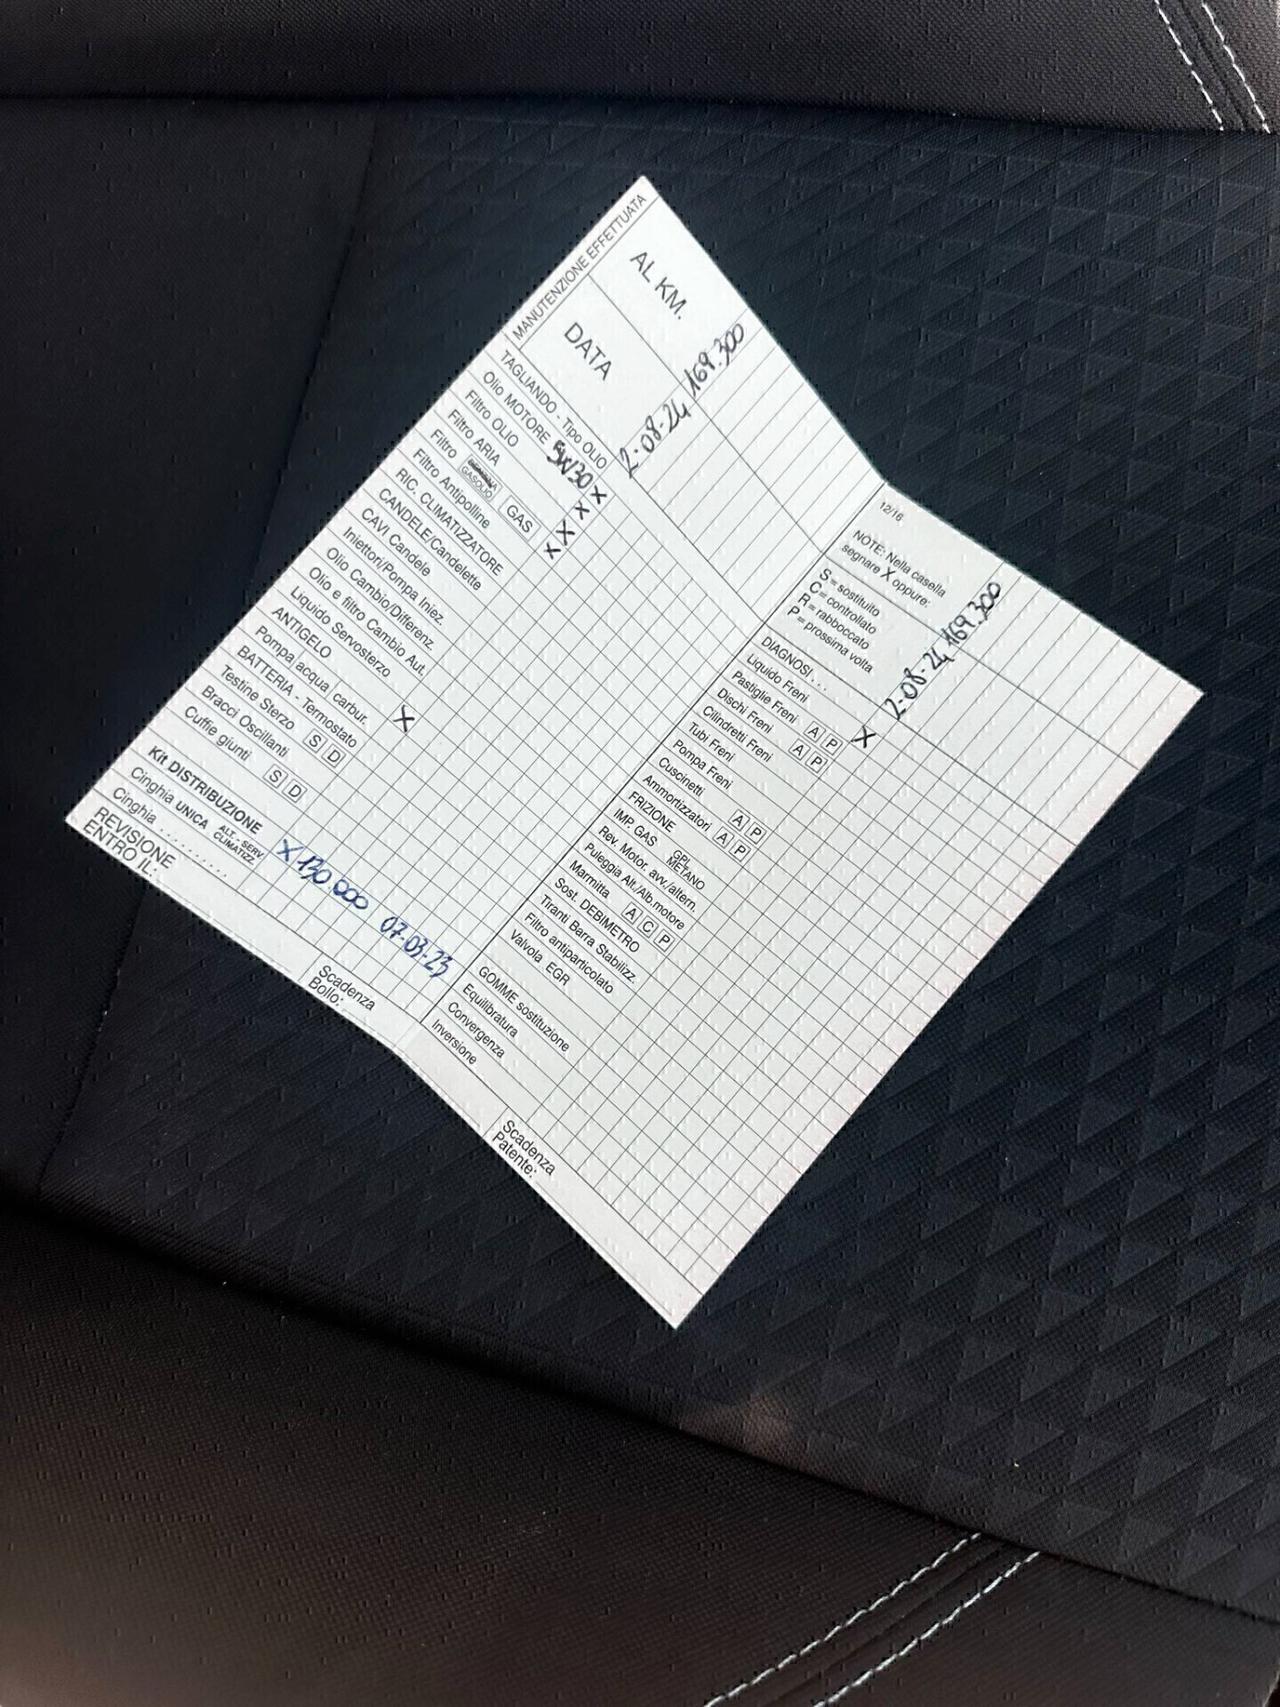 MANUTENZIONE EFFETTUATA
AL KM.
169.300
DATA
2-08-24
TAGLIANDO - Tipo OLIO
Olio MOTORE 5W30 X
Filtro OLIO X
Filtro ARIA X
Filtro GASOLIO GAS X
Filtro Antipolline X
RIC. CLIMATIZZATORE
CANDELE/Candelette
CAVI Candele
Iniettori/Pompa Iniez.
Olio Cambio/Differenz.
Olio e filtro Cambio Aut.
Liquido Servosterzo
ANTIGELO X
Pompa acqua carbur.
BATTERIA - Termostato
Testine Sterzo S D
Bracci Oscillanti
Cuffie giunti S D
Kit DISTRIBUZIONE X 130 000 07-03-23
Cinghia UNICA ALT. - SERV. CLIMATIZZ.
Cinghia . . . . . . . . . . .
REVISIONE
ENTRO IL:
Scadenza
Bollo:
12/16
NOTE: Nella casella
segnare X oppure:
S = sostituito
C = controllato
R = rabboccato
P = prossima volta
2-08-24 169.300
DIAGNOSI . . .
Liquido Freni
Pastiglie Freni A P X
Dischi Freni A P
Cilindretti Freni
Tubi Freni
Pompa Freni
Cuscinetti A P
Ammortizzatori A P
FRIZIONE
IMP. GAS GPL METANO
Rev. Motor. avv./altern.
Puleggia Alt./Alb.motore
Marmitta A C P
Sost. DEBIMETRO
Tiranti Barra Stabilizz.
Filtro antiparticolato
Valvola EGR
GOMME sostituzione
Equilibratura
Convergenza
Inversione
Scadenza
Patente: